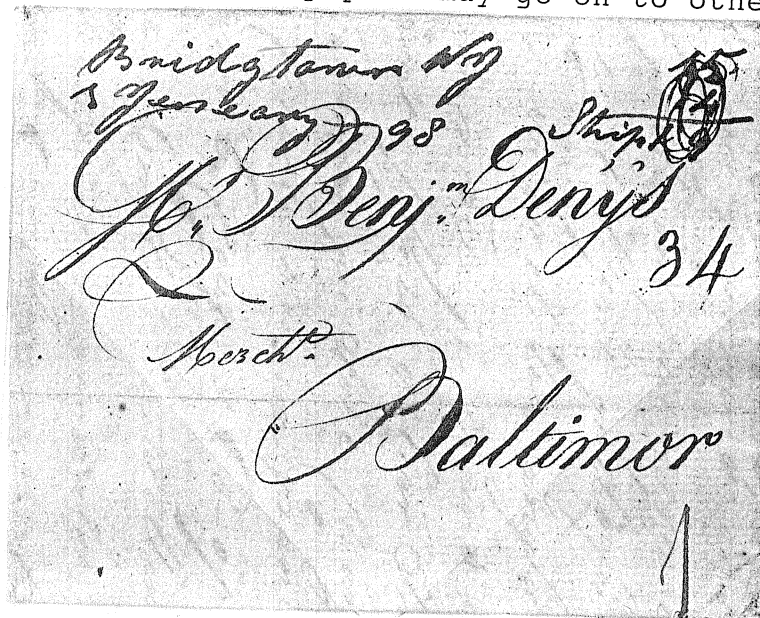 may go on to othe
Bridgtown NJ 15
5 Jeneary 98 Ship
Mr. Benjm. Denys
34
Mercht.
Baltimor